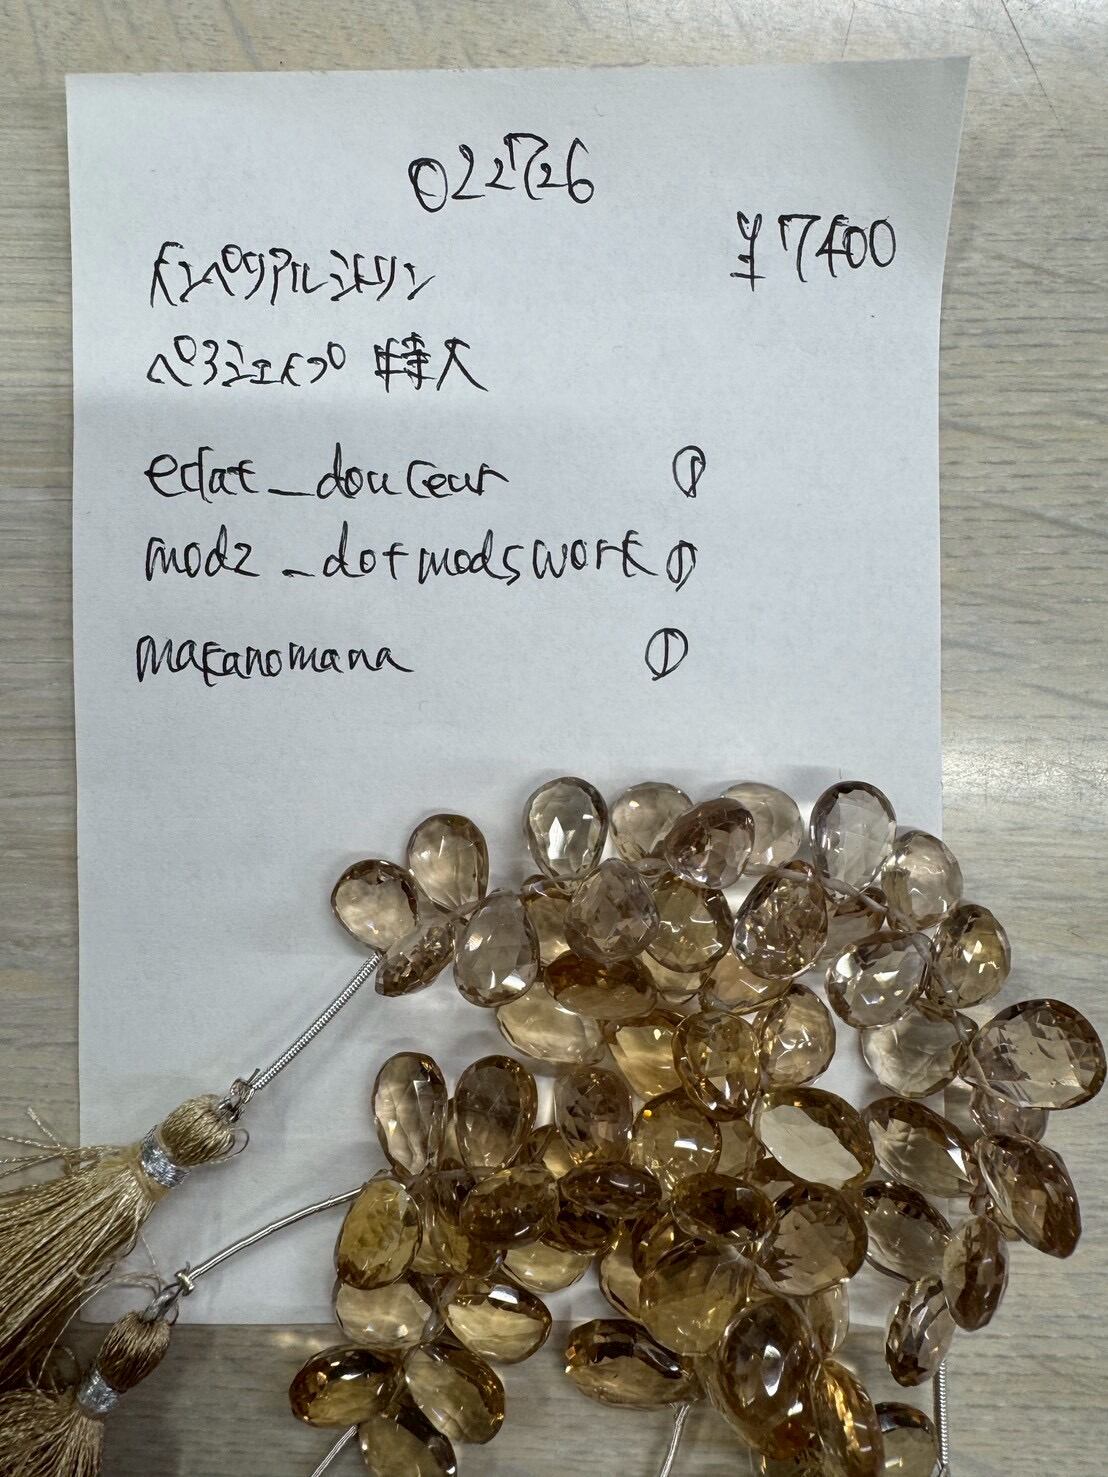 022726
¥7400
インペリアルシトリン
ペアシェイプ 特大
eclat_douceur ①
mod2_dotmodswork ①
makanomana ①